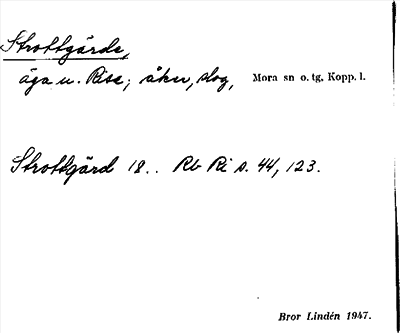 Strottgärde,
äga u. Risa; åker, slog, Mora sn o. tg, Kopp. l.
Strottgärd 18.. Rb Ri s. 44, 123.
Bror Lindén 1947.